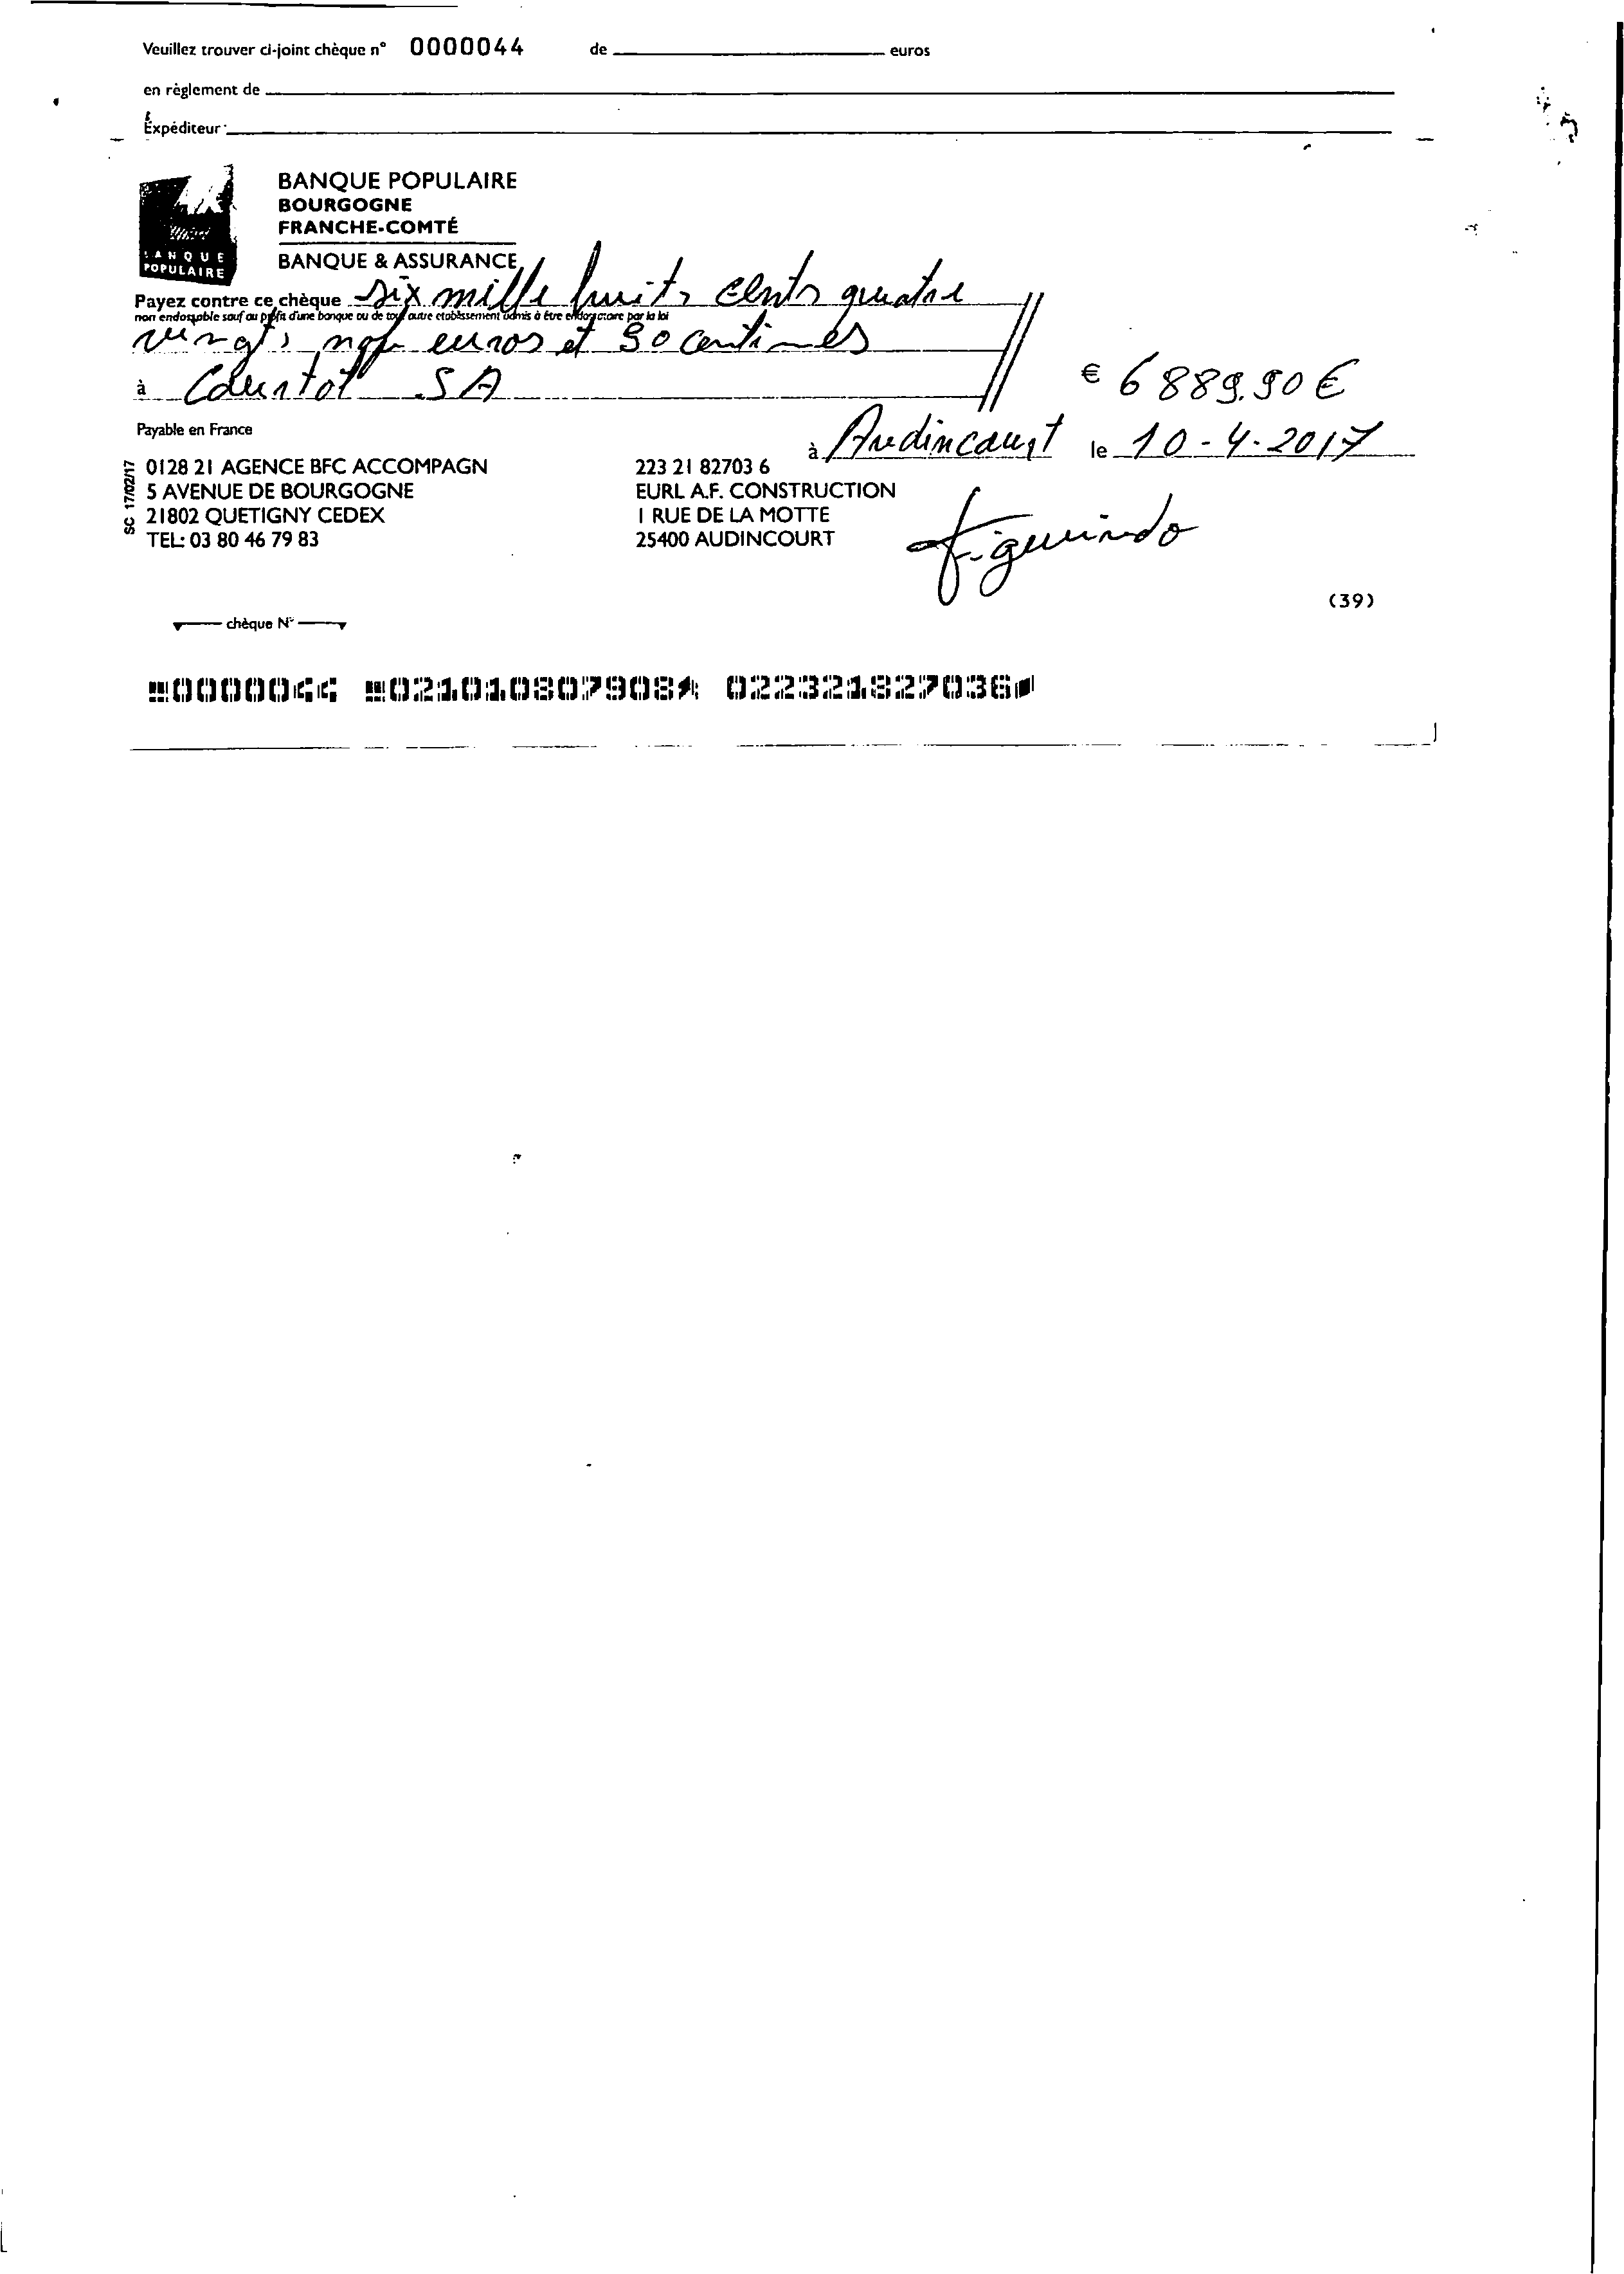 Veuillez trouver ci-joint chèque n° 0000044 de euros
en règlement de
Expéditeur :
BANQUE POPULAIRE
BOURGOGNE
FRANCHE-COMTÉ
BANQUE & ASSURANCE
BANQUE
POPULAIRE
Payez contre ce chèque six mille huits cents quatre
non endossable sauf au profit d'une banque ou de tout autre etablissement admis à être endossataire par la loi
vingts neuf euros et 90 centimes
à SA
€ 6889.90 €
Payable en France
à Audincourt le 10-4-2017
SC 17/02/17
0128 21 AGENCE BFC ACCOMPAGN
5 AVENUE DE BOURGOGNE
21802 QUETIGNY CEDEX
TEL: 03 80 46 79 83
223 21 82703 6
EURL A.F. CONSTRUCTION
1 RUE DE LA MOTTE
25400 AUDINCOURT
(39)
chèque N°
0000044 021010807908 022321827036